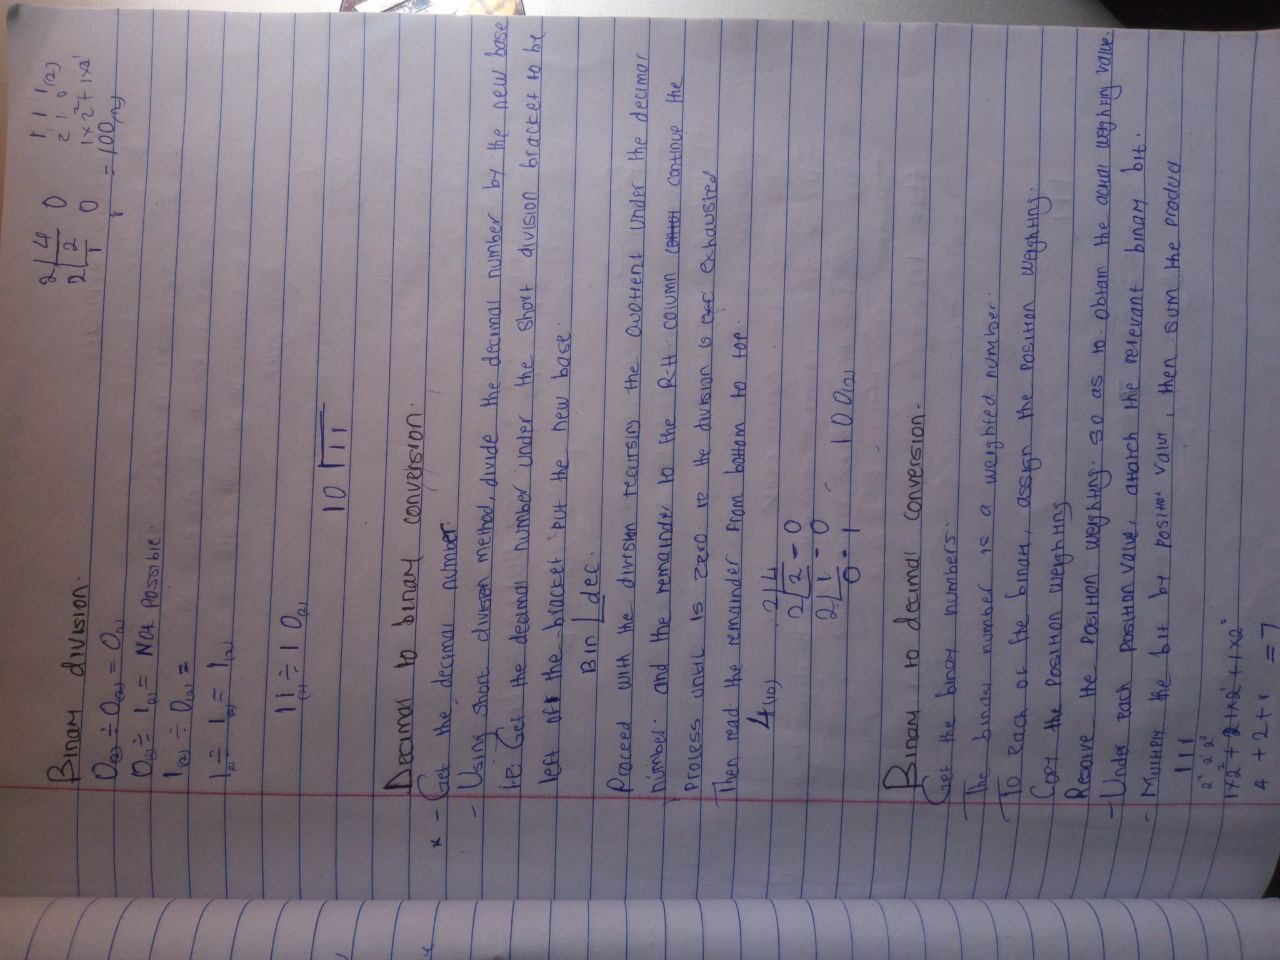 2 4 0
2 2 0
1
1 1 1(2)
2 1 0
1×2² + 1×2¹
= 100(2)
Binary division.
0(2) ÷ 0(2) = 0(2)
0(2) ÷ 1(2) = Not possible.
1(2) ÷ 0(2) =
1(2) ÷ 1(2) = 1(2)
11(2) ÷ 10(2)
10 11
Decimal to binary conversion.
* - Get the decimal number.
- Using short division method, divide the decimal number by the new base
i.e. Get the decimal number under the short division bracket to be
left of the bracket put the new base.
Bin dec.
Proceed with the division the quotient under the decimal
number. and the remainder to the R-H column continue the
process until is zero. ie the division is exhausted
Then read the remainder from bottom to top.
4(10) 2 4
2 2 - 0
2 1 - 0
0 - 1 100(2)
Binary to decimal conversion.
Get the binary numbers.
The binary number is a weighted number.
To each of the binary, assign the position weighting.
Copy the position weighting
Resolve the position weighting. so as to obtain the actual weighting value.
- Under each position value, attatch the relevant binary bit.
- Multiply the bit by position value, then sum the product
111
2² 2¹ 2⁰
1×2² + 1×2¹ + 1×2⁰
4 + 2 + 1 = 7